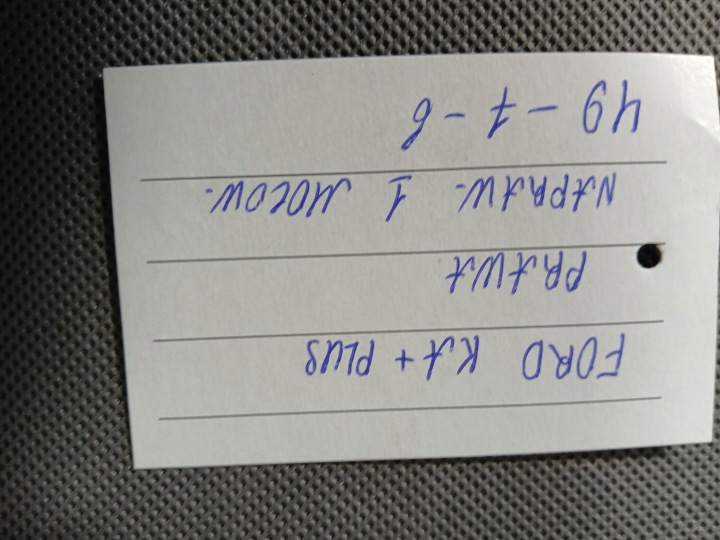 FORD KA+ PLUS
PRAWA
NAPRAW. I MOCOW.
49 - 7 - 6